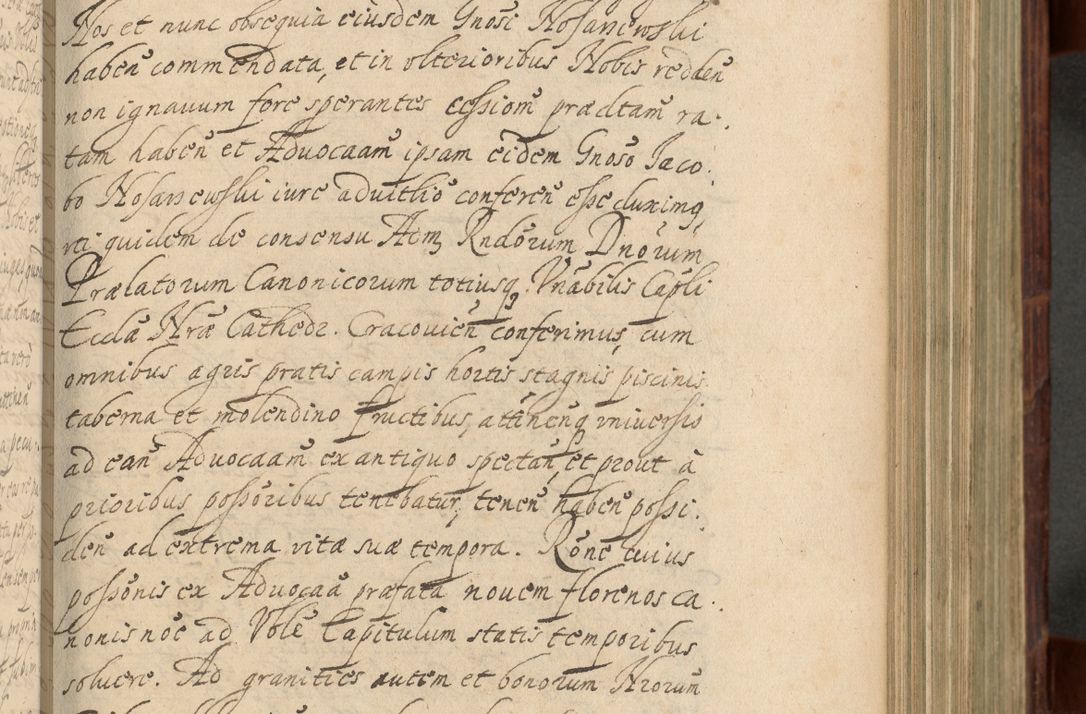 Nos et nunc obsequia eiusdem Gnosi Nosarzewski
habeñ commendata, et in vlterioribus Nobis reddeñ
non ignauum fore sperantes cessionē prædtam ra-
tam habeñ et Aduocaām ipsam eidem Gnoso Jaco-
bo Nosarzewski iure aduitlio confereñ esse duximq,
vti quidem de consensu Adm Rndorum Dnorum
Prælatorum Canonicorum totiusq. Vnabilis Capli
Ecclæ Nræ Cathedr. Cracovieñ conferimus, cum
omnibus agris pratis campis hortis stagnis piscinis
taberna et molendino fructibus, attineñq vniversis
ad eañ Aduocaam ex antiquo spectañ, et prout à
prioribus possoribus tenebatur, teneñ habeñ possi-
deñ ad extrema vitæ suæ tempora. Rōne cuius
possōnis ex Aduocaā præfata nouem florenos ca-
nonis nõe ad Vble Capitulum statis temporibus
soluere. Ad granities autem et bonorum Nrorum